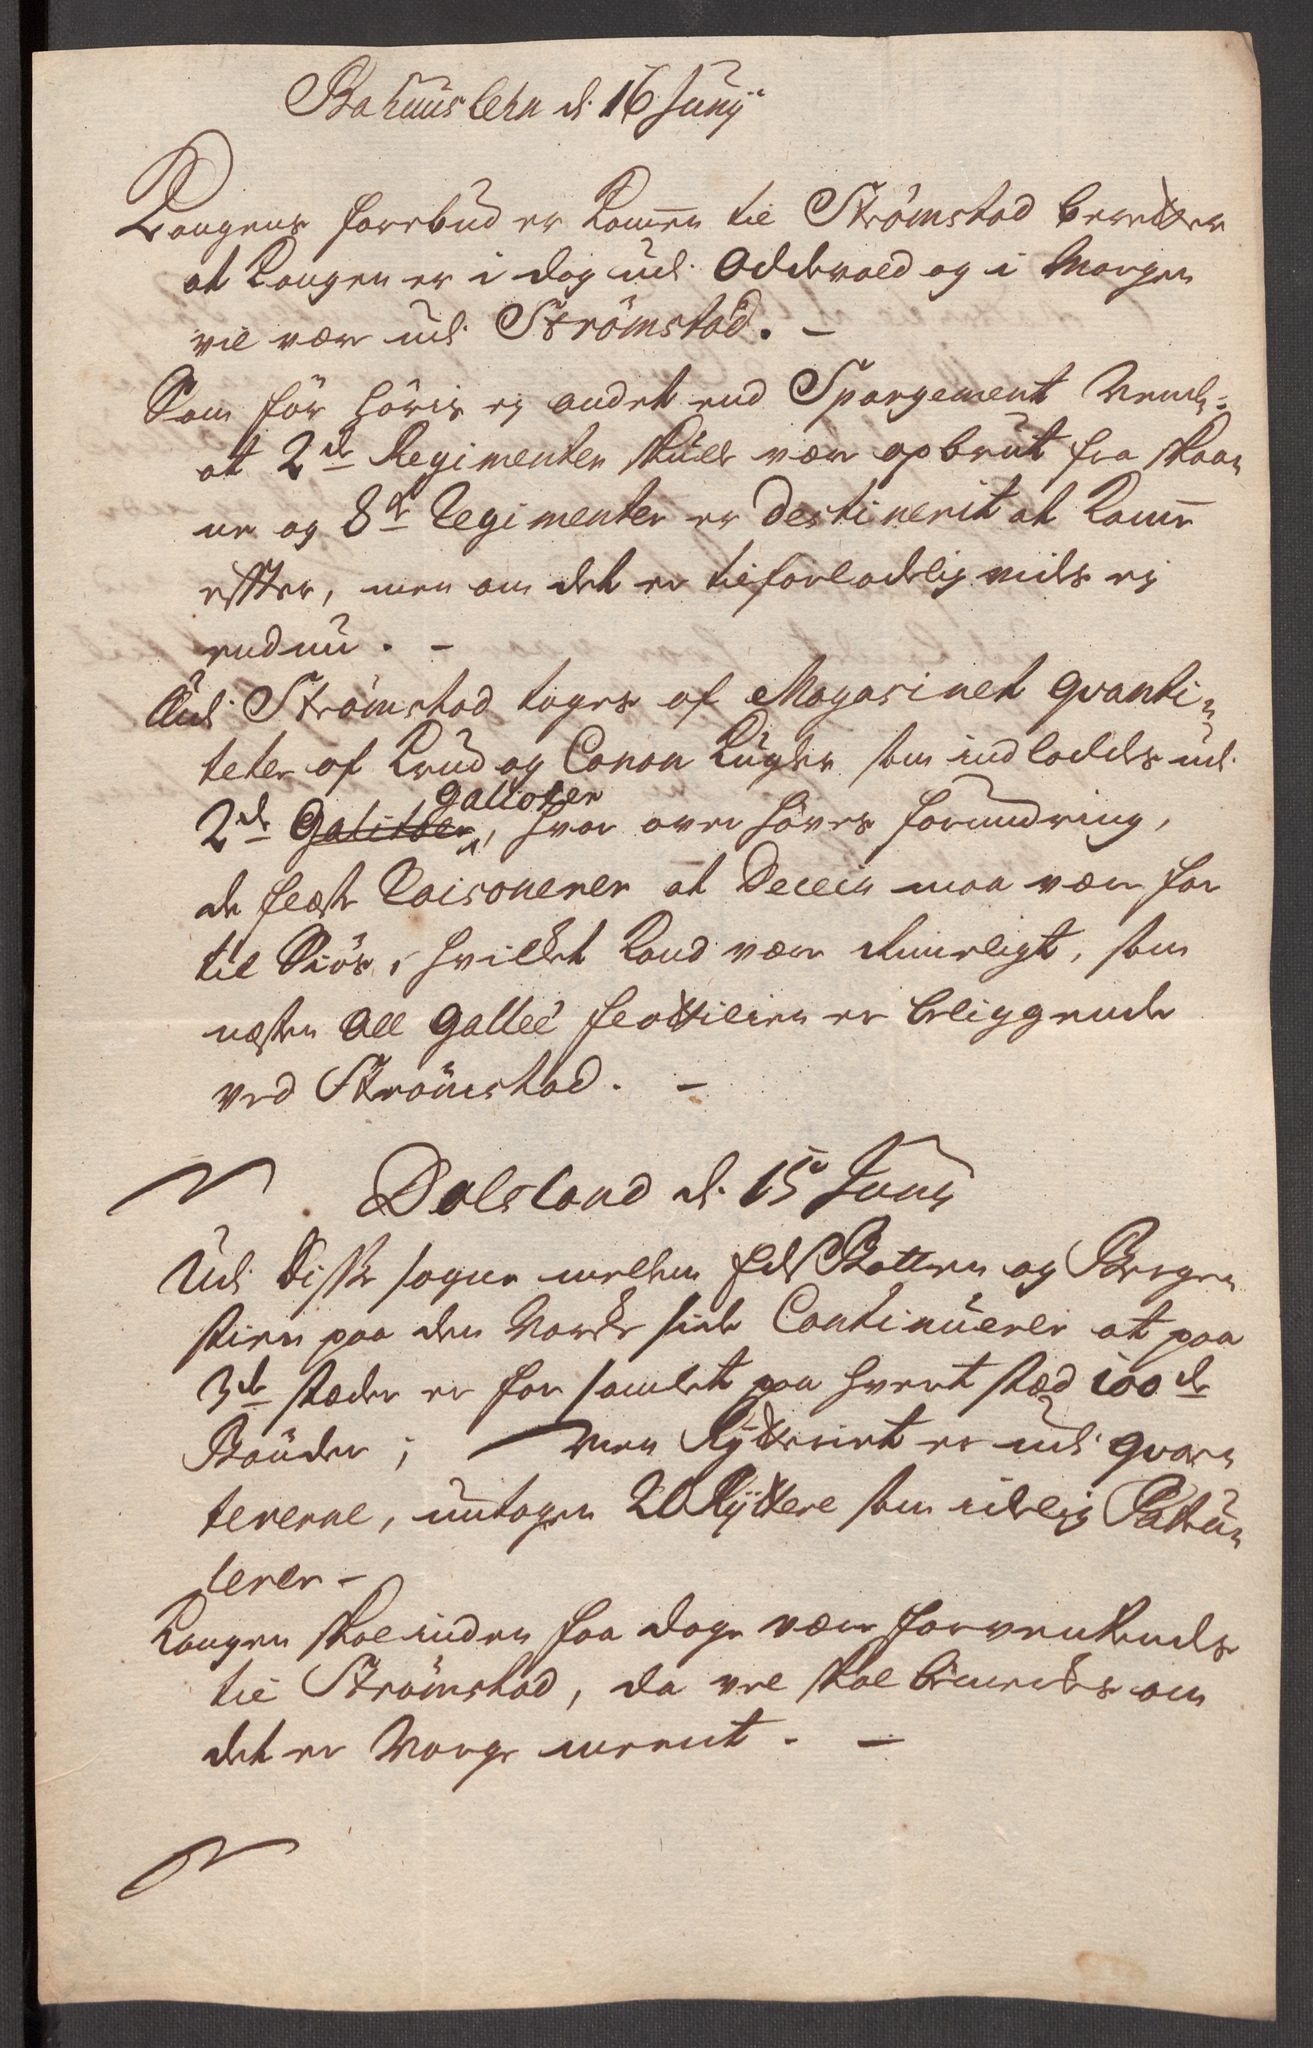 Bahuuslehn d: 16 Junij
Kongens forebud er kommen til Strømstad beretter
at Kongen er i dag udi Oddevald og i Morgen
vil være udi Strømstad. -
Som för höris ej andet end Spargement Neml:
at 2de Regimenter skulle være opbrut fra Skaa=
ne og 8te Regimenter er destinerit at komme
effter, men om det er tilforladelig vides ej
endnu. -
Udi Strømstad toges af Magasinet qvanti=
teter af Krud og Canon Kugler som indladdes udi
2de Galitter galloter, hvor over höres forundring,
de fleste Raisonerer at Decein maa være for
til Siös, hvilket kand være rimeligt, som
næsten All Galleé flottilien er beliggende
ved Strømstad. -
Dalsland d: 15 Junij
Udi disse sogne mellem Ed og
paa den Norske side Continuerer at paa
3de stæder er forsamlet paa hvert stæd 100de
Bönder; - Men Rytteriet er udi qvar=
tererne, undtagen 20 Ryttere som idelig Patrul=
lerer -
Kongen skal inden faa dage være forventendes
til Strømstad, da vel skal bemerkes om
det er Norge meent. -